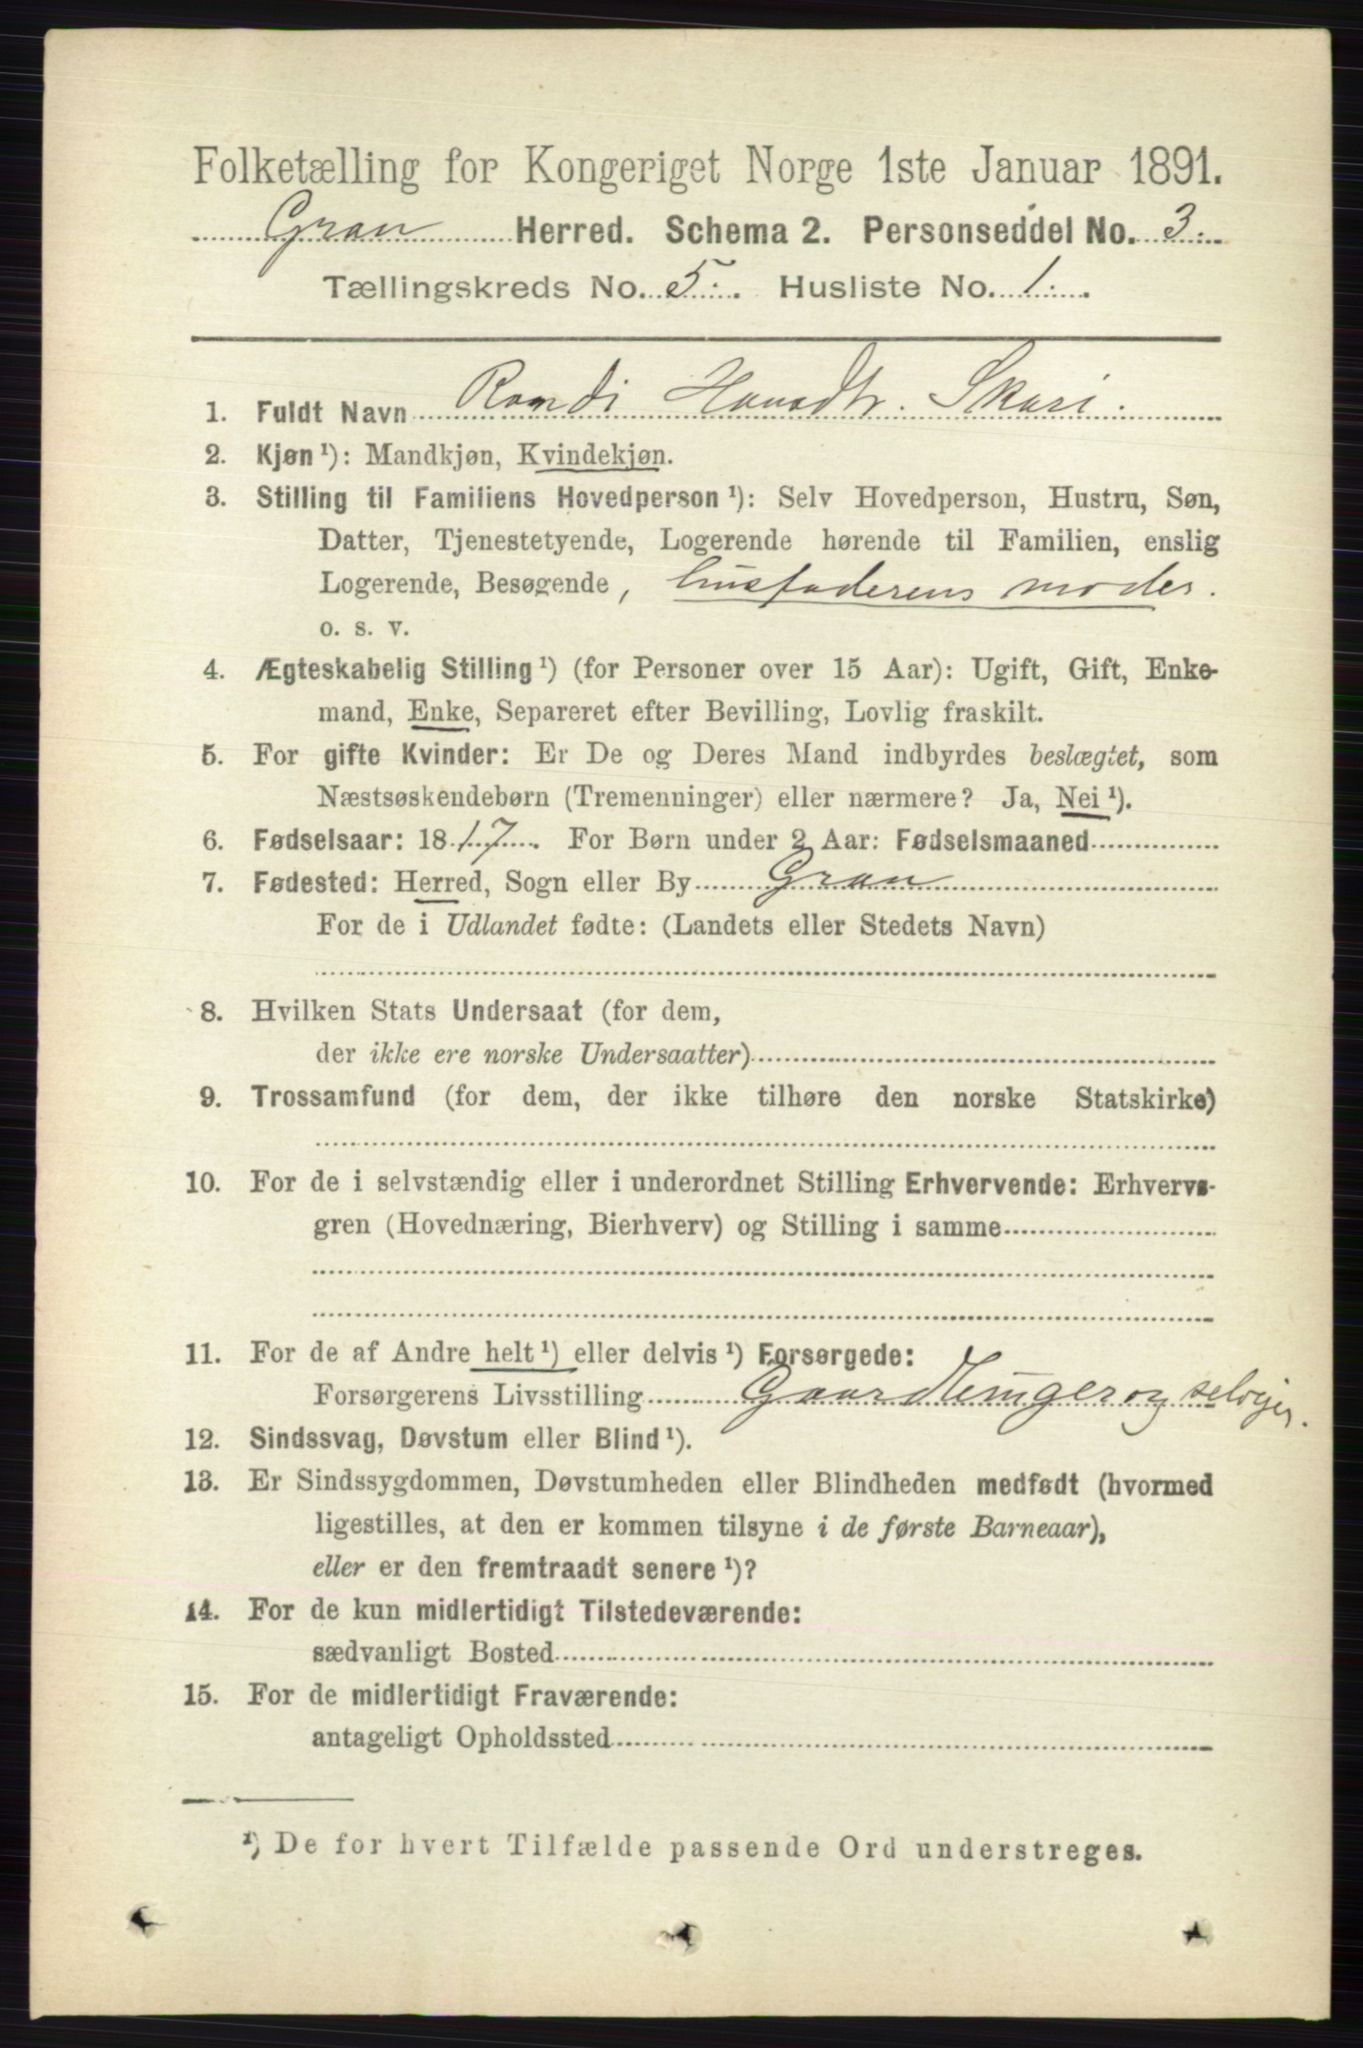 Folketælling for Kongeriget Norge 1ste Januar 1891.
Gran Herred. Schema 2. Personseddel No. 3.
Tællingskreds No. 5. Husliste No. 1.
1. Fuldt Navn Randi Skari.
2. Kjøn ¹): Mandkjøn, Kvindekjøn.
3. Stilling til Familiens Hovedperson ¹): Selv Hovedperson, Hustru, Søn,
Datter, Tjenestetyende, Logerende hørende til Familien, enslig
Logerende, Besøgende, husfaderens moder.
o. s. v.
4. Ægteskabelig Stilling ¹) (for Personer over 15 Aar): Ugift, Gift, Enke-
mand, Enke, Separeret efter Bevilling, Lovlig fraskilt.
5. For gifte Kvinder: Er De og Deres Mand indbyrdes beslægtet, som
Næstsøskendebørn (Tremenninger) eller nærmere? Ja, Nei ¹).
6. Fødselsaar: 1817. For Børn under 2 Aar: Fødselsmaaned
7. Fødested: Herred, Sogn eller By Gran
For de i Udlandet fødte: (Landets eller Stedets Navn)
8. Hvilken Stats Undersaat (for dem,
der ikke ere norske Undersaatter)
9. Trossamfund (for dem, der ikke tilhøre den norske Statskirke)
10. For de i selvstændig eller i underordnet Stilling Erhvervende: Erhvervs-
gren (Hovednæring, Bierhverv) og Stilling i samme
11. For de af Andre helt ¹) eller delvis ¹) Forsørgede:
Forsørgerens Livsstilling og selveier.
12. Sindssvag, Døvstum eller Blind ¹).
13. Er Sindssygdommen, Døvstumheden eller Blindheden medfødt (hvormed
ligestilles, at den er kommen tilsyne i de første Barneaar),
eller er den fremtraadt senere ¹)?
14. For de kun midlertidigt Tilstedeværende:
sædvanligt Bosted
15. For de midlertidigt Fraværende:
antageligt Opholdssted
¹) De for hvert Tilfælde passende Ord understreges.